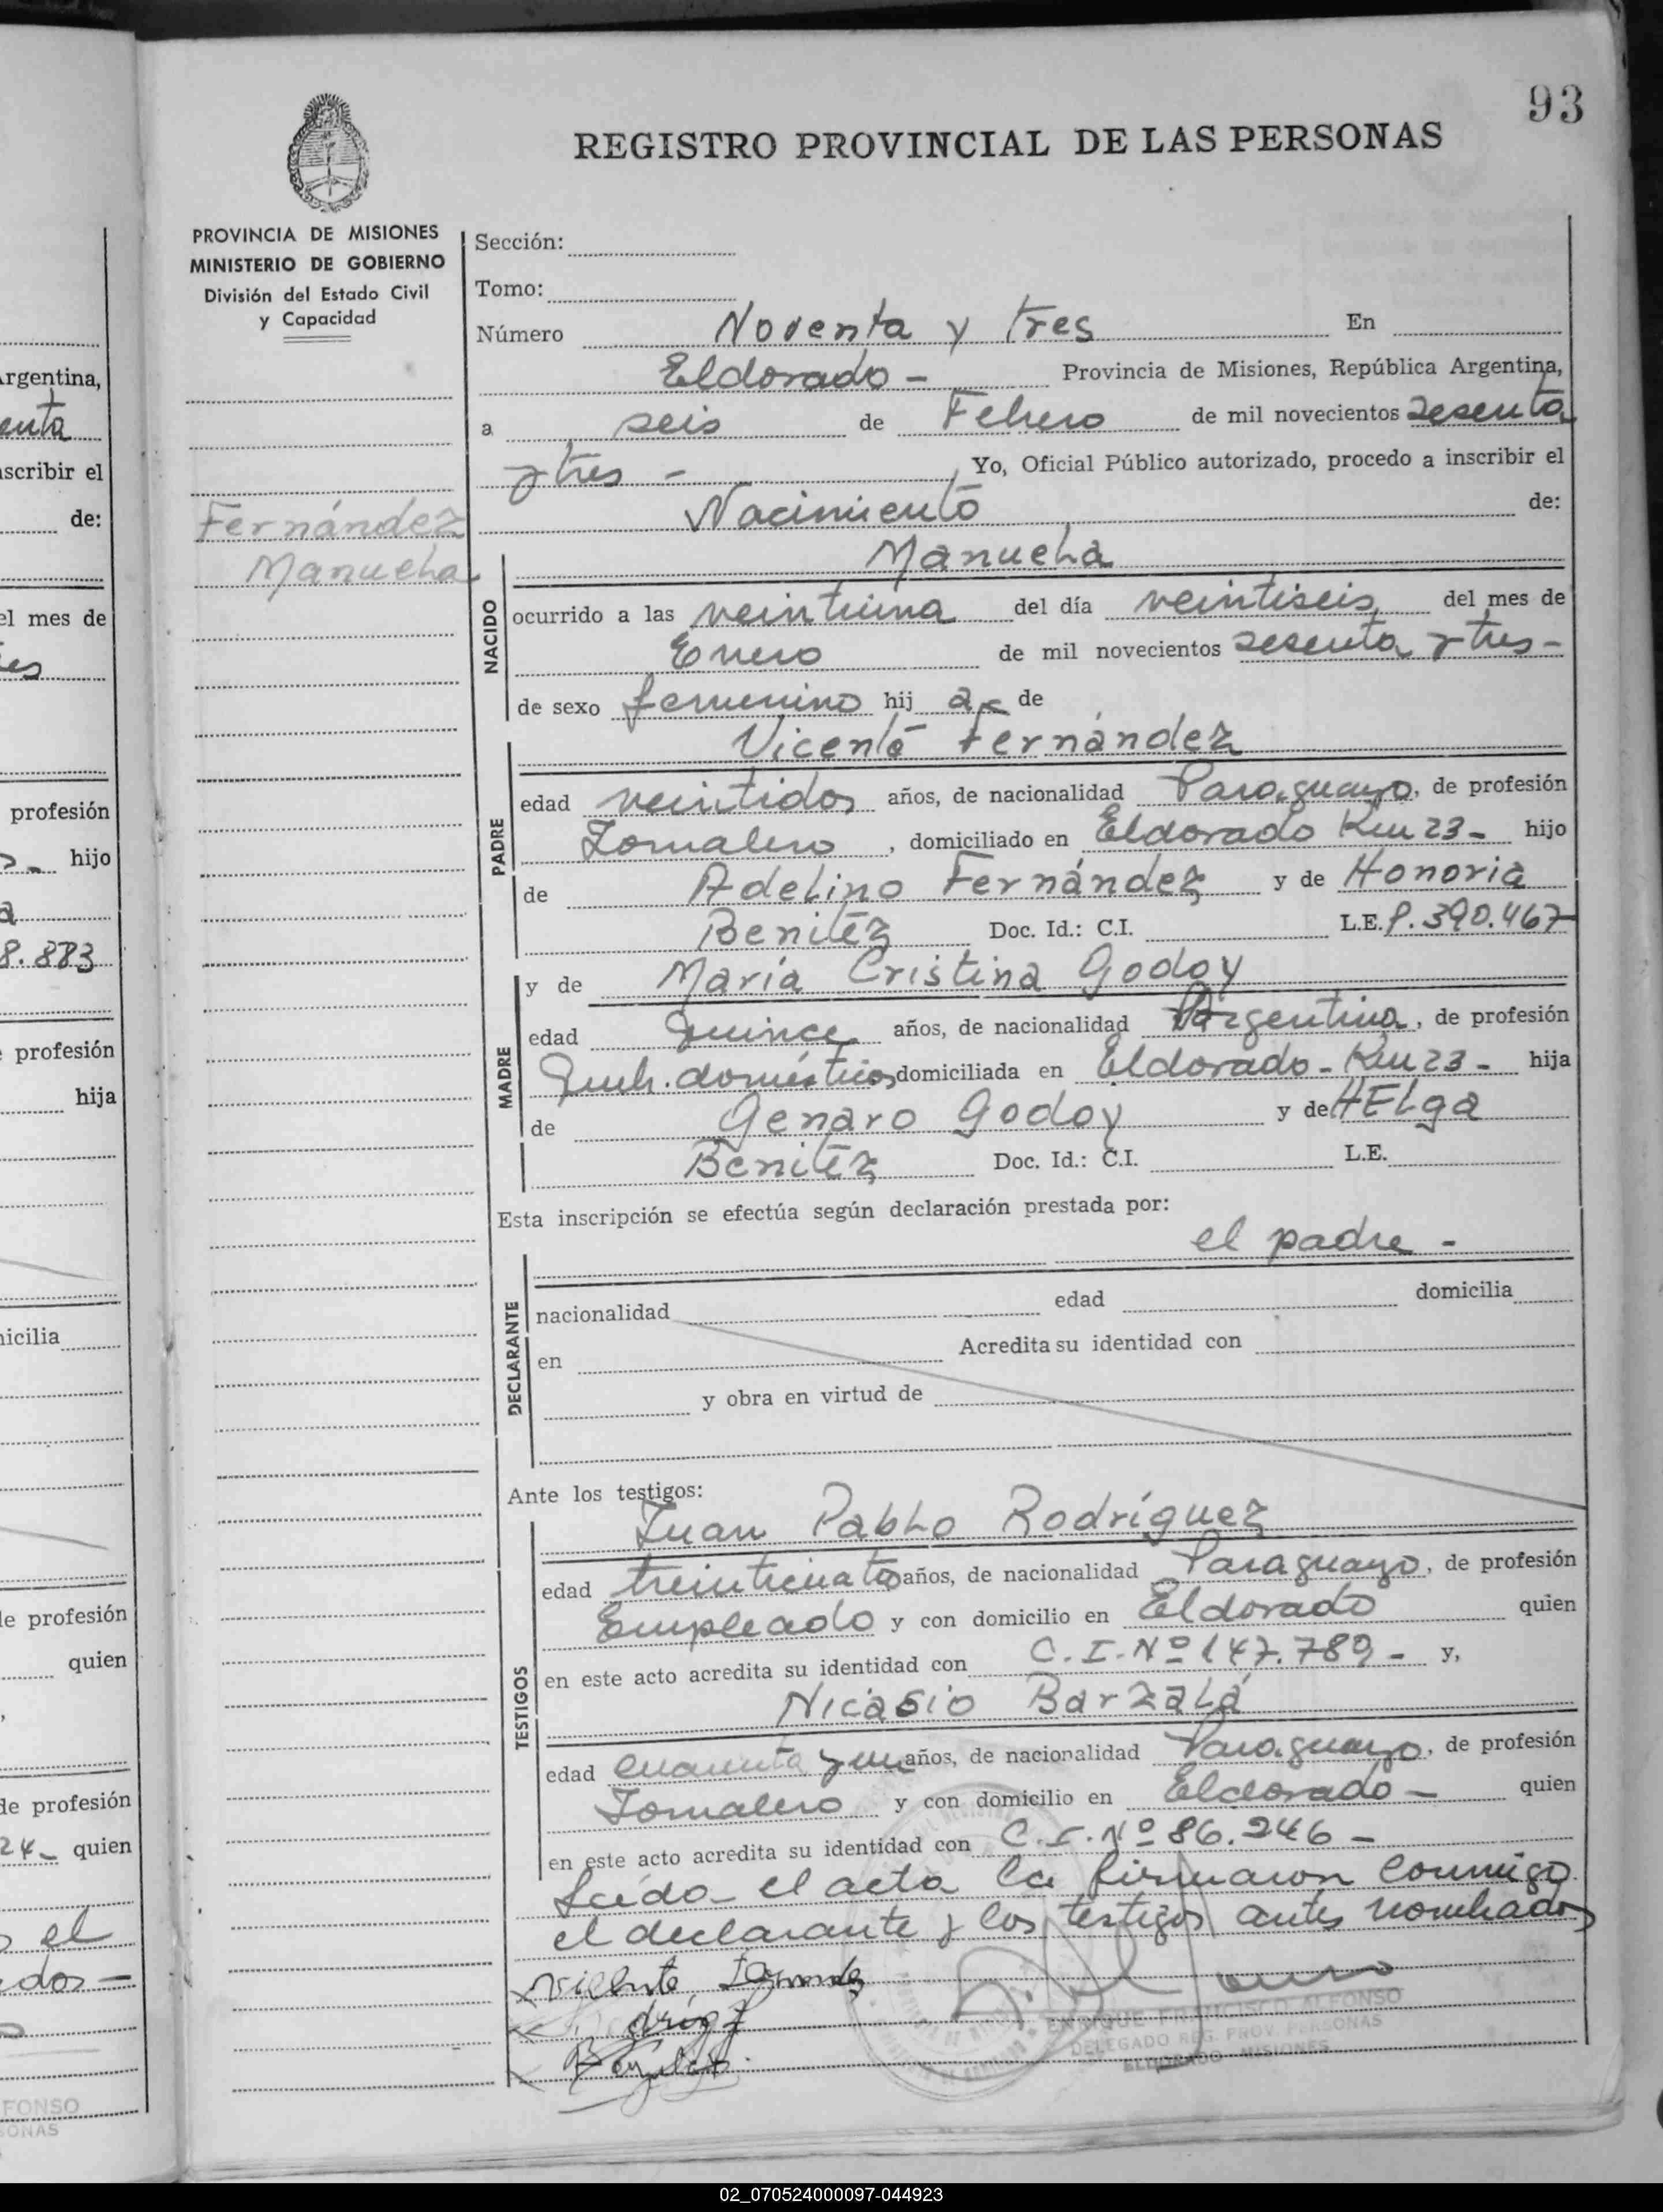 93
REGISTRO PROVINCIAL DE LAS PERSONAS
PROVINCIA DE MISIONES
MINISTERIO DE GOBIERNO
División del Estado Civil
y Capacidad
Fernández
Manuela
Sección:
Tomo:
Número Noventa y tres En
Eldorado - Provincia de Misiones, República Argentina,
a seis de Febrero de mil novecientos sesenta
y tres - Yo, Oficial Público autorizado, procedo a inscribir el
Nacimiento de:
Manuela
NACIDO
ocurrido a las veintiuna del día veintiseis del mes de
Enero de mil novecientos sesenta y tres -
de sexo femenino hij a de
Vicente Fernández
PADRE
edad veintidos años, de nacionalidad Paraguayo, de profesión
Jornalero, domiciliado en Eldorado Km 23 - hijo
de Adelino Fernández y de Honoria
Benitez Doc. Id.: C.I. L.E. P. 390.467
y de María Cristina Godoy
MADRE
edad Quince años, de nacionalidad Argentina, de profesión
Queh. domésticos domiciliada en Eldorado - Km 23 - hija
de Genaro Godoy y de HElga
Benitez Doc. Id.: C.I. L.E.
Esta inscripción se efectúa según declaración prestada por:
el padre -
DECLARANTE
nacionalidad edad domicilia
en Acredita su identidad con
y obra en virtud de
Ante los testigos:
Juan Pablo Rodríguez
TESTIGOS
edad treinticuatro años, de nacionalidad Paraguayo, de profesión
Empleado y con domicilio en Eldorado quien
en este acto acredita su identidad con C.I. Nº 147.789 - y,
Nicasio Barzalá
edad cuarenta y un años, de nacionalidad Paraguayo, de profesión
Jornalero y con domicilio en Eldorado - quien
en este acto acredita su identidad con C.I. Nº 86.246 -
Leída el acta la firmaron conmigo
el declarante y los testigos antes nombrados
Vicente Fernandez
ENRIQUE FRANCISCO ALFONSO
DELEGADO REG. PROV. PERSONAS
ELDORADO - MISIONES
rgentina,
enta
scribir el
de:
el mes de
es
profesión
hijo
a
8.883
profesión
hija
icilia
de profesión
quien
de profesión
24 - quien
el
dos -
FONSO
SONAS
02_070524000097-044923